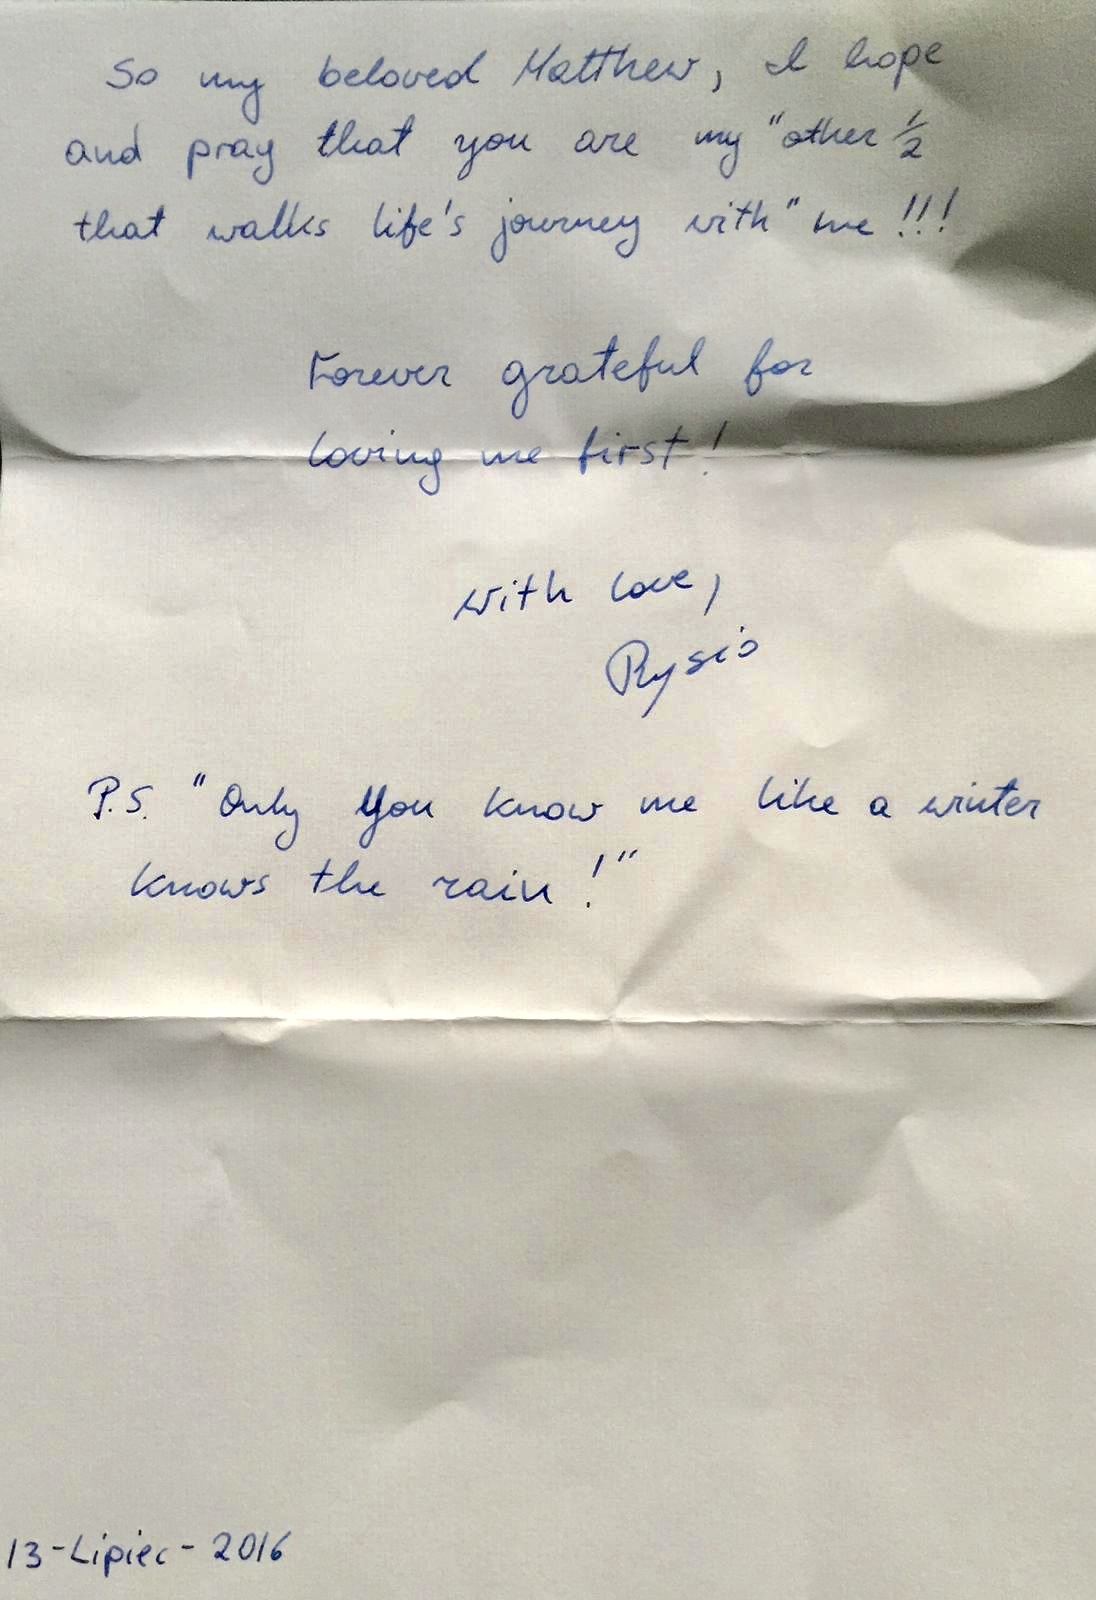 So my beloved Matthew, I hope
and pray that you are my "other 1/2
that walks life's journey with" me !!!
Forever grateful for
loving me first!
With love,
Rysio
P.S. "Only You know me like a winter
knows the rain!"
13-Lipiec-2016